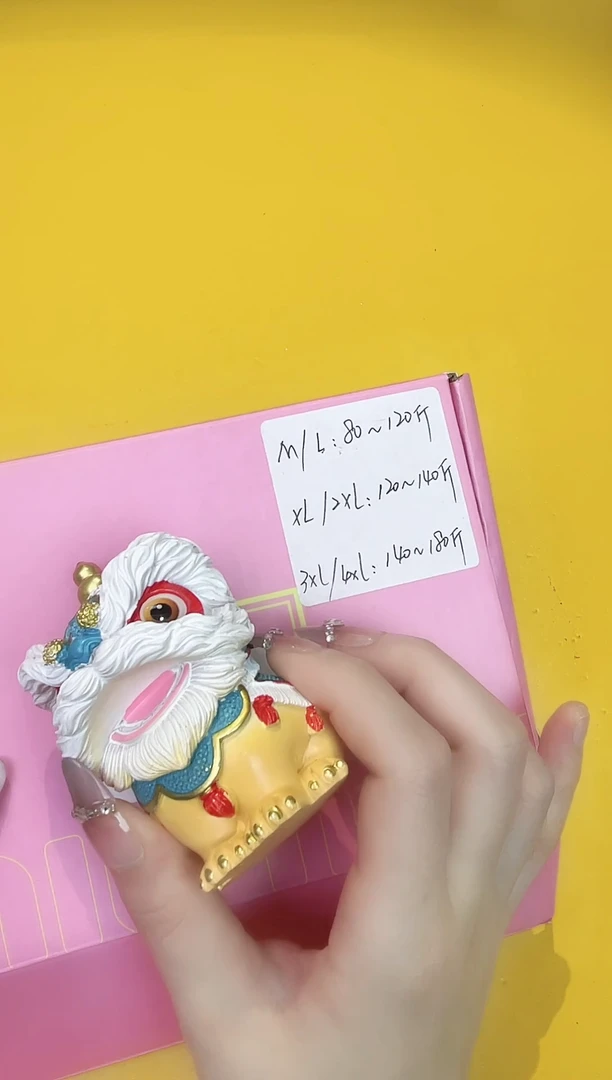 M/L:80~120斤
XL/2XL:120~140斤
3XL/4XL:140~180斤